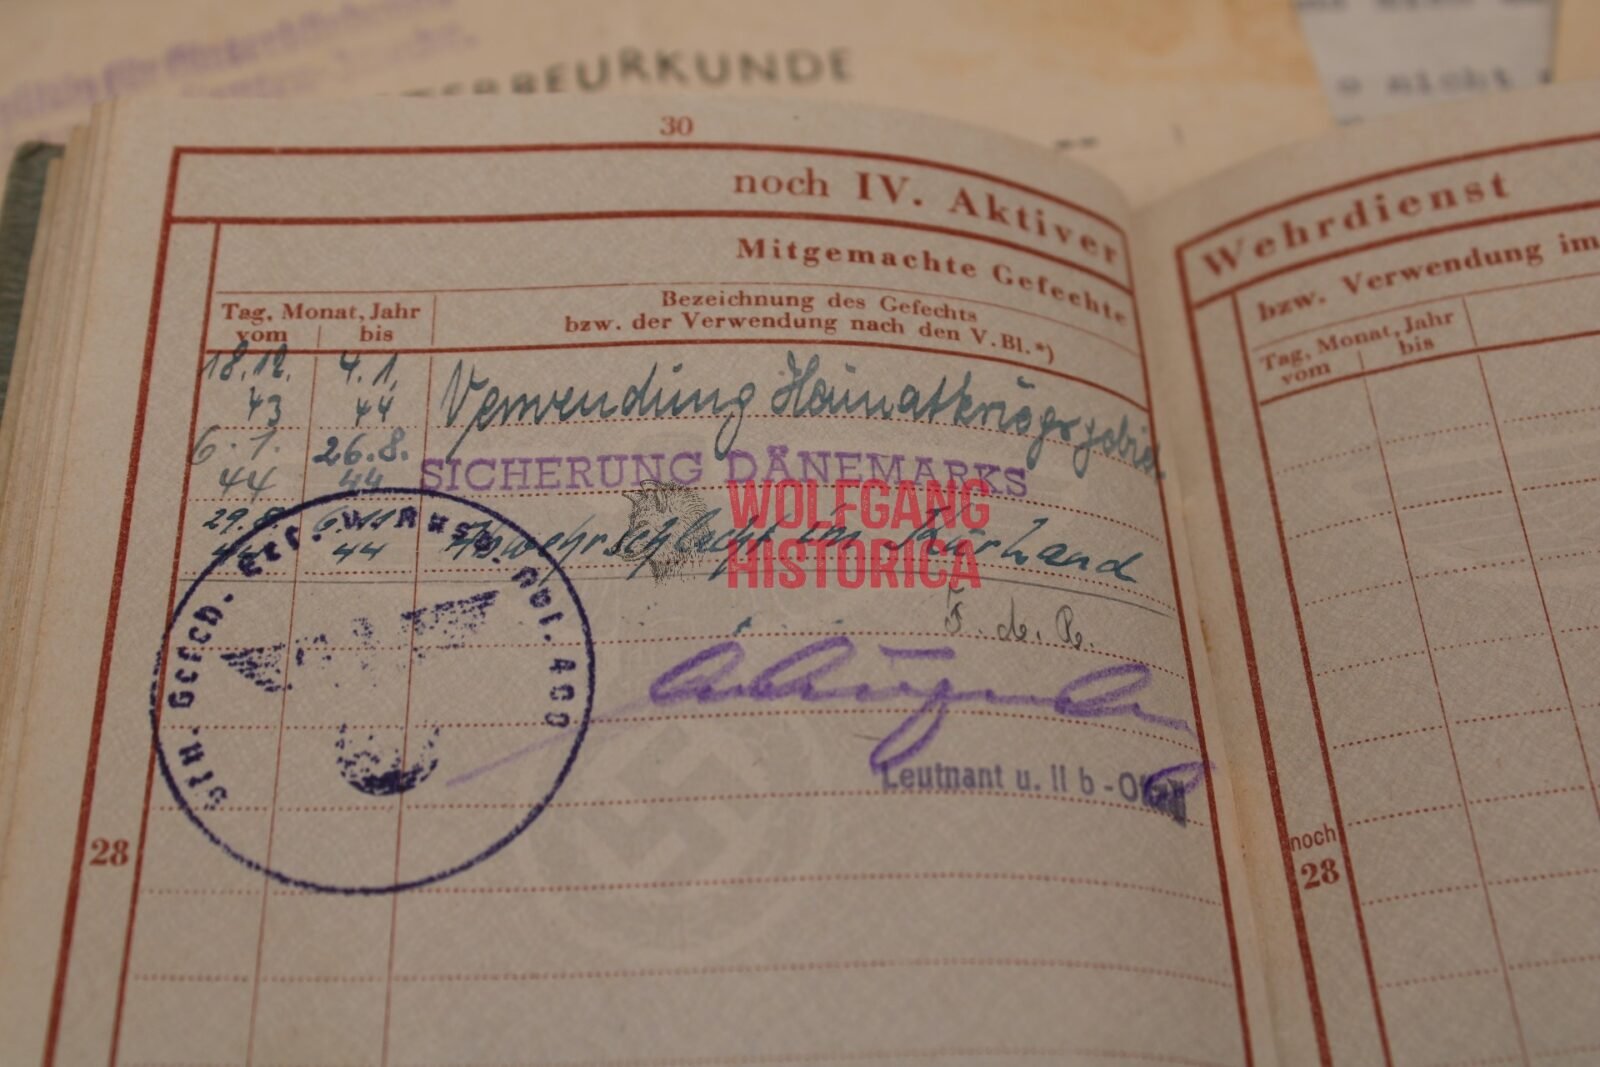 STERBEURKUNDE
nicht
30
noch IV. Aktiver
Mitgemachte Gefechte
Tag, Monat, Jahr
vom bis
Bezeichnung des Gefechts
bzw. der Verwendung nach den V.Bl.*)
18.12. 4.1.
43 44
Verwendung Heimatkriegsgebiet
6.1. 26.8.
44 44
SICHERUNG DÄNEMARKS
29.8. 6.11
44 44
Abwehrschlacht im Kurland
WOLFGANG
HISTORICA
F. d. R.
Leutnant u. II b - Offz.
Abt. 400
28
Wehrdienst
bzw. Verwendung im
Tag, Monat, Jahr
vom bis
noch
28